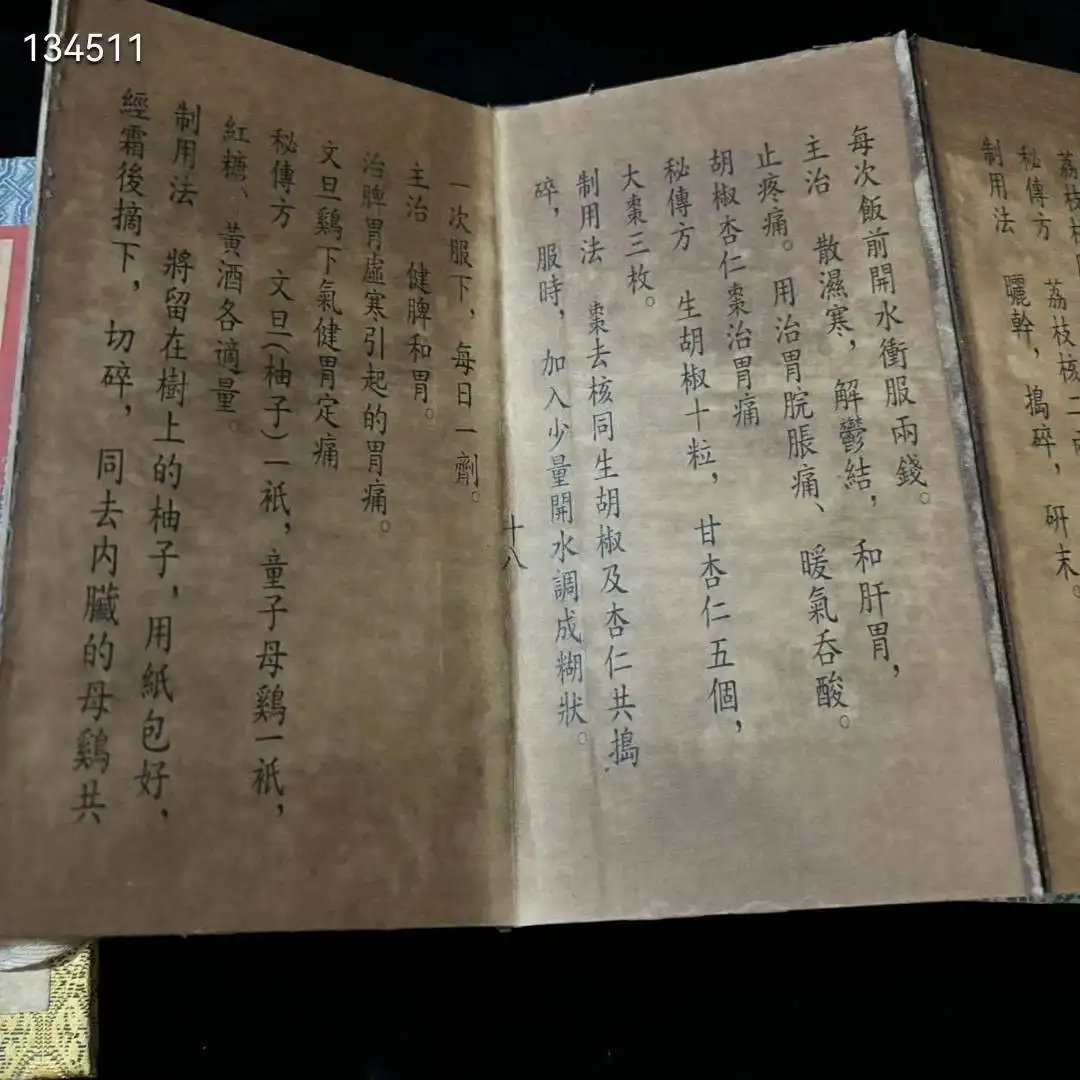 134511
荔枝核
秘傳方 荔枝核二兩
制用法 曬幹，搗碎，研末。
每次飯前開水衝服兩錢。
主治 散濕寒，解鬱結，和肝胃，
止疼痛。用治胃脘脹痛、暖氣吞酸。
胡椒杏仁棗治胃痛
秘傳方 生胡椒十粒，甘杏仁五個，
大棗三枚。
制用法 棗去核同生胡椒及杏仁共搗
碎，服時，加入少量開水調成糊狀。
十八
一次服下，每日一劑。
主治 健脾和胃。
治脾胃虛寒引起的胃痛。
文旦鷄下氣健胃定痛
秘傳方 文旦(柚子)一衹，童子母鷄一衹，
紅糖、黃酒各適量。
制用法 將留在樹上的柚子，用紙包好，
經霜後摘下，切碎，同去內臟的母鷄共